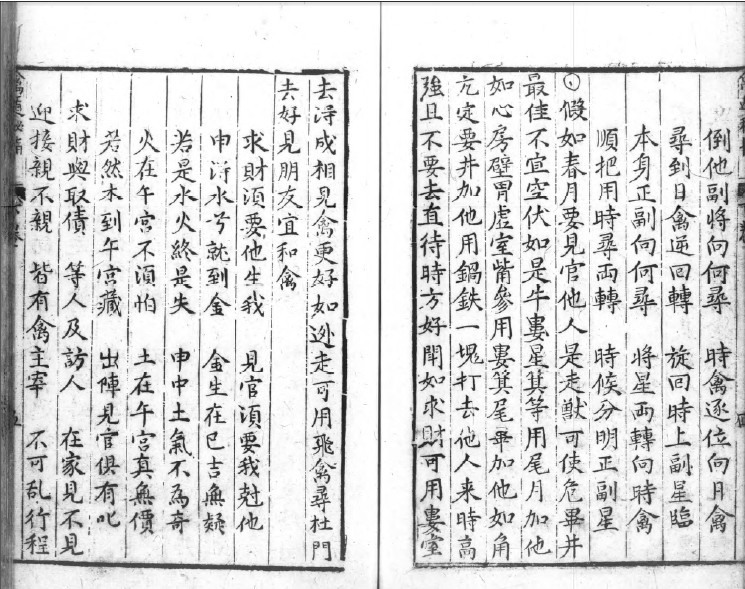 倒他副将向何尋　時禽逐位向日禽
尋到日禽逆回轉　旋回時上副星臨
本身正副向何尋　將星两轉向時禽
順把用時尋两轉　時候分明正副星
假如春月要見官他人是走獸可使危畢井
最佳不宜空伏如是牛婁星箕等用尾月加他
如心房壁胃虚室觜參用婁箕尾畢加他如角
亢定要井加他用鍋鉄一塊打去他人来時高
強且不要去直待時方好聞如求財可用婁室
去淂成相見禽更好如逊走可用飛禽尋杜門
去好見朋友宜和禽
求財湏要他生我　見官湏要我尅他
申淂水兮就到金　金生在巳吉無疑
若是水火終是失　申中土氣不為奇
火在午宫不湏怕　土在午宫真無價
若然木到午宫藏　出陣見官俱有叱
求財與取債　等人及訪人　在家見不見
迎接親不親　皆有禽主宰　不可乱行程